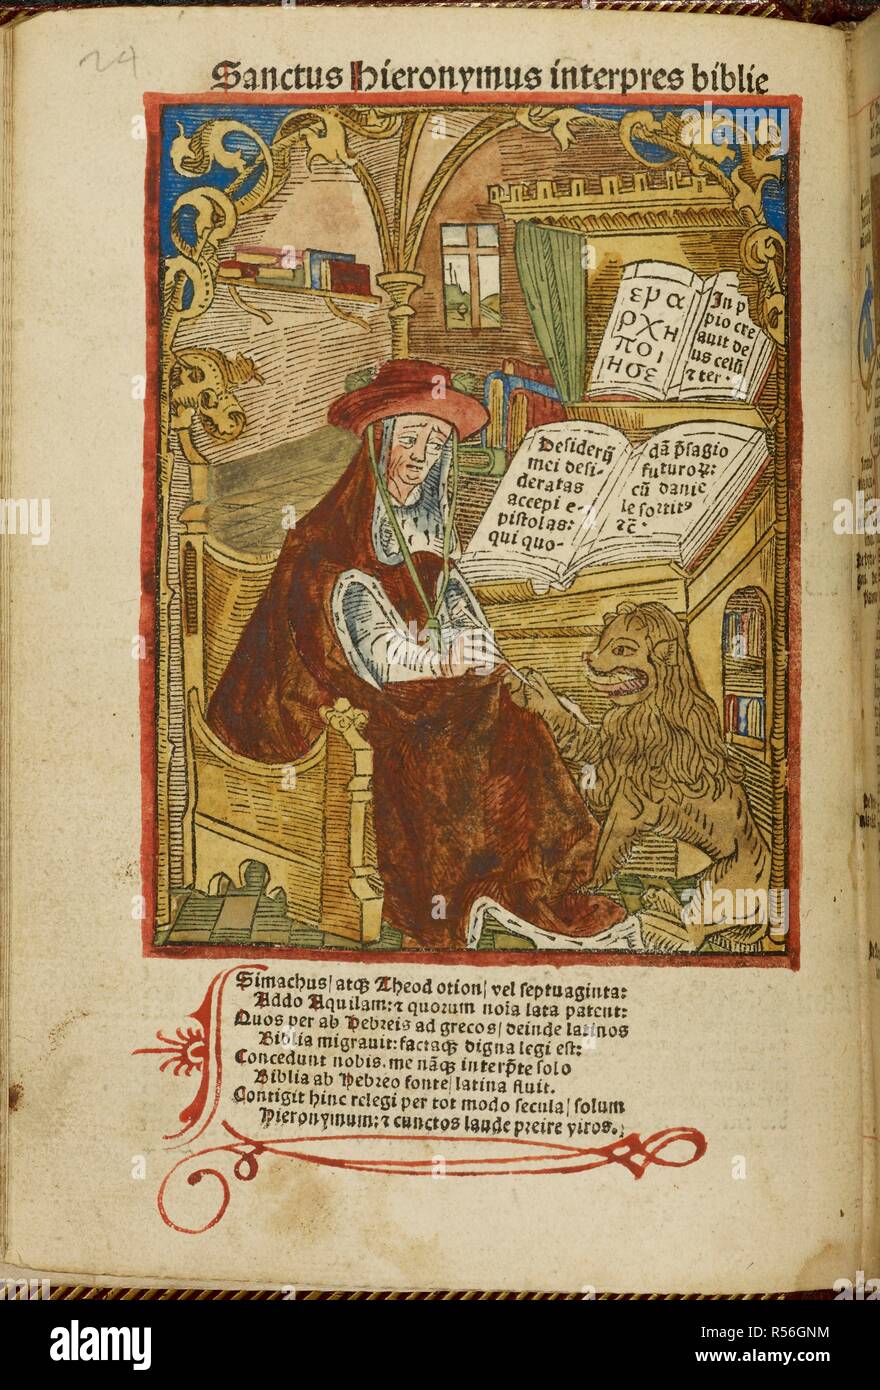 24
Sanctus Hieronymus interpres biblie
ερα
ρχη
ποι
ησε
In p
pio cre
auit de
us celū
⁊ ter.
Desiderij
mei desi-
deratas
accepi e-
pistolas:
qui quo-
dā p̄sagio
futuroꝝ:
cū danie
le sortitꝰ
⁊c̄.
Simachus/ atqꝫ Theodotion/ vel septuaginta:
Addo Aquilam: ⁊ quorum noīa lata patent:
Quos per ab Hebreis ad grecos/ deinde latinos
Biblia migrauit: factaqꝫ digna legi est:
Concedunt nobis. me nāqꝫ interp̄te solo
Biblia ab Hebreo fonte/ latina fluit.
Contigit hinc relegi per tot modo secula/ solum
Hieronymum: ⁊ cunctos laude preire viros.
alamy
alamy stock photo
R56GNM
www.alamy.com